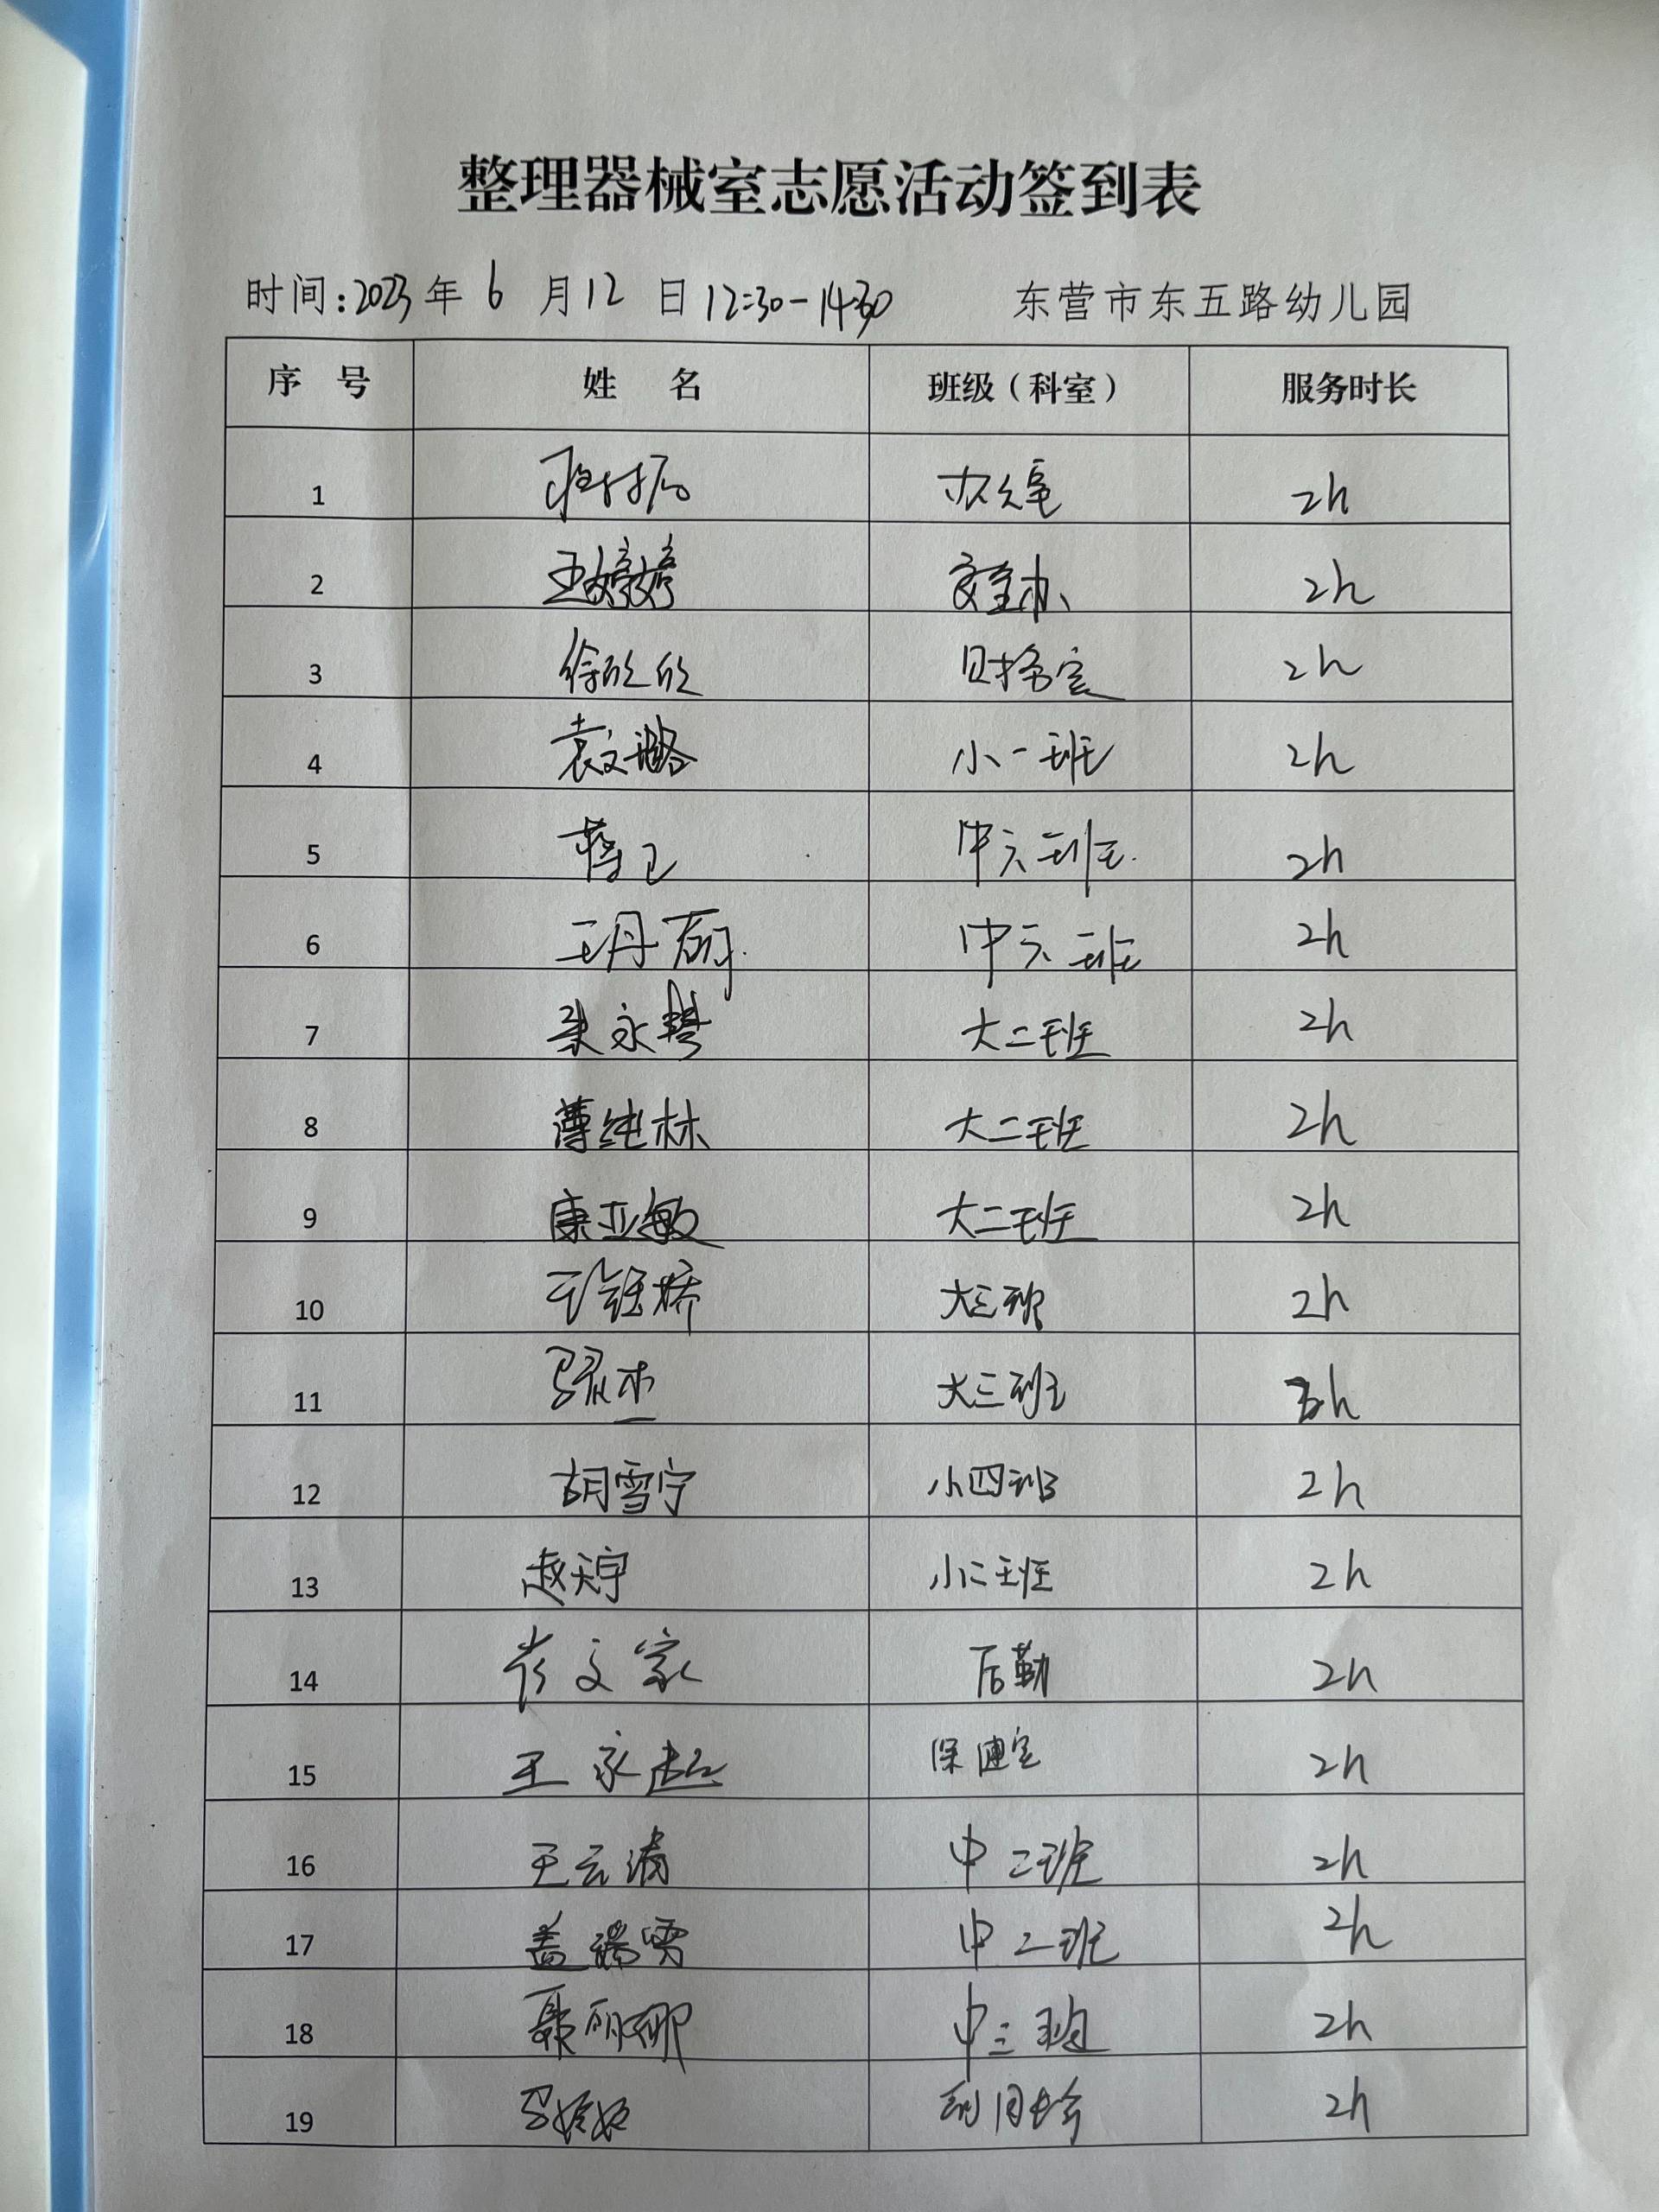 整理器械室志愿活动签到表
时间:2023年6月12日12:30-14:30 东营市东五路幼儿园
序号 姓名 班级(科室) 服务时长
1 办公室 2h
2 王婷婷 安全办 2h
3 徐欣欣 财务室 2h
4 袁文璐 小一班 2h
5 蒋卫 中六班 2h
6 王丹丽 中六班 2h
7 永琴 大二班 2h
8 薄纯林 大二班 2h
9 康亚敏 大二班 2h
10 王钰娇 大三班 2h
11 大三班 2h
12 胡雪宁 小四班 2h
13 赵天宇 小二班 2h
14 文家 后勤 2h
15 王永超 保健室 2h
16 王云清 中二班 2h
17 盖瑞雪 中二班 2h
18 聂丽娜 中三班 2h
19 2h